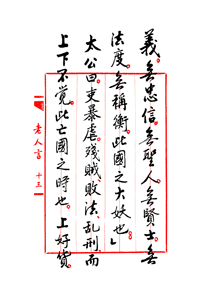 義。無忠信。無聖人。無賢士。無
法度。無稱衡。此國之大妖也」
太公曰。吏暴虐殘賊。敗法亂刑。而
上下不覺。此亡國之時也。上好貨。
老人言 十三